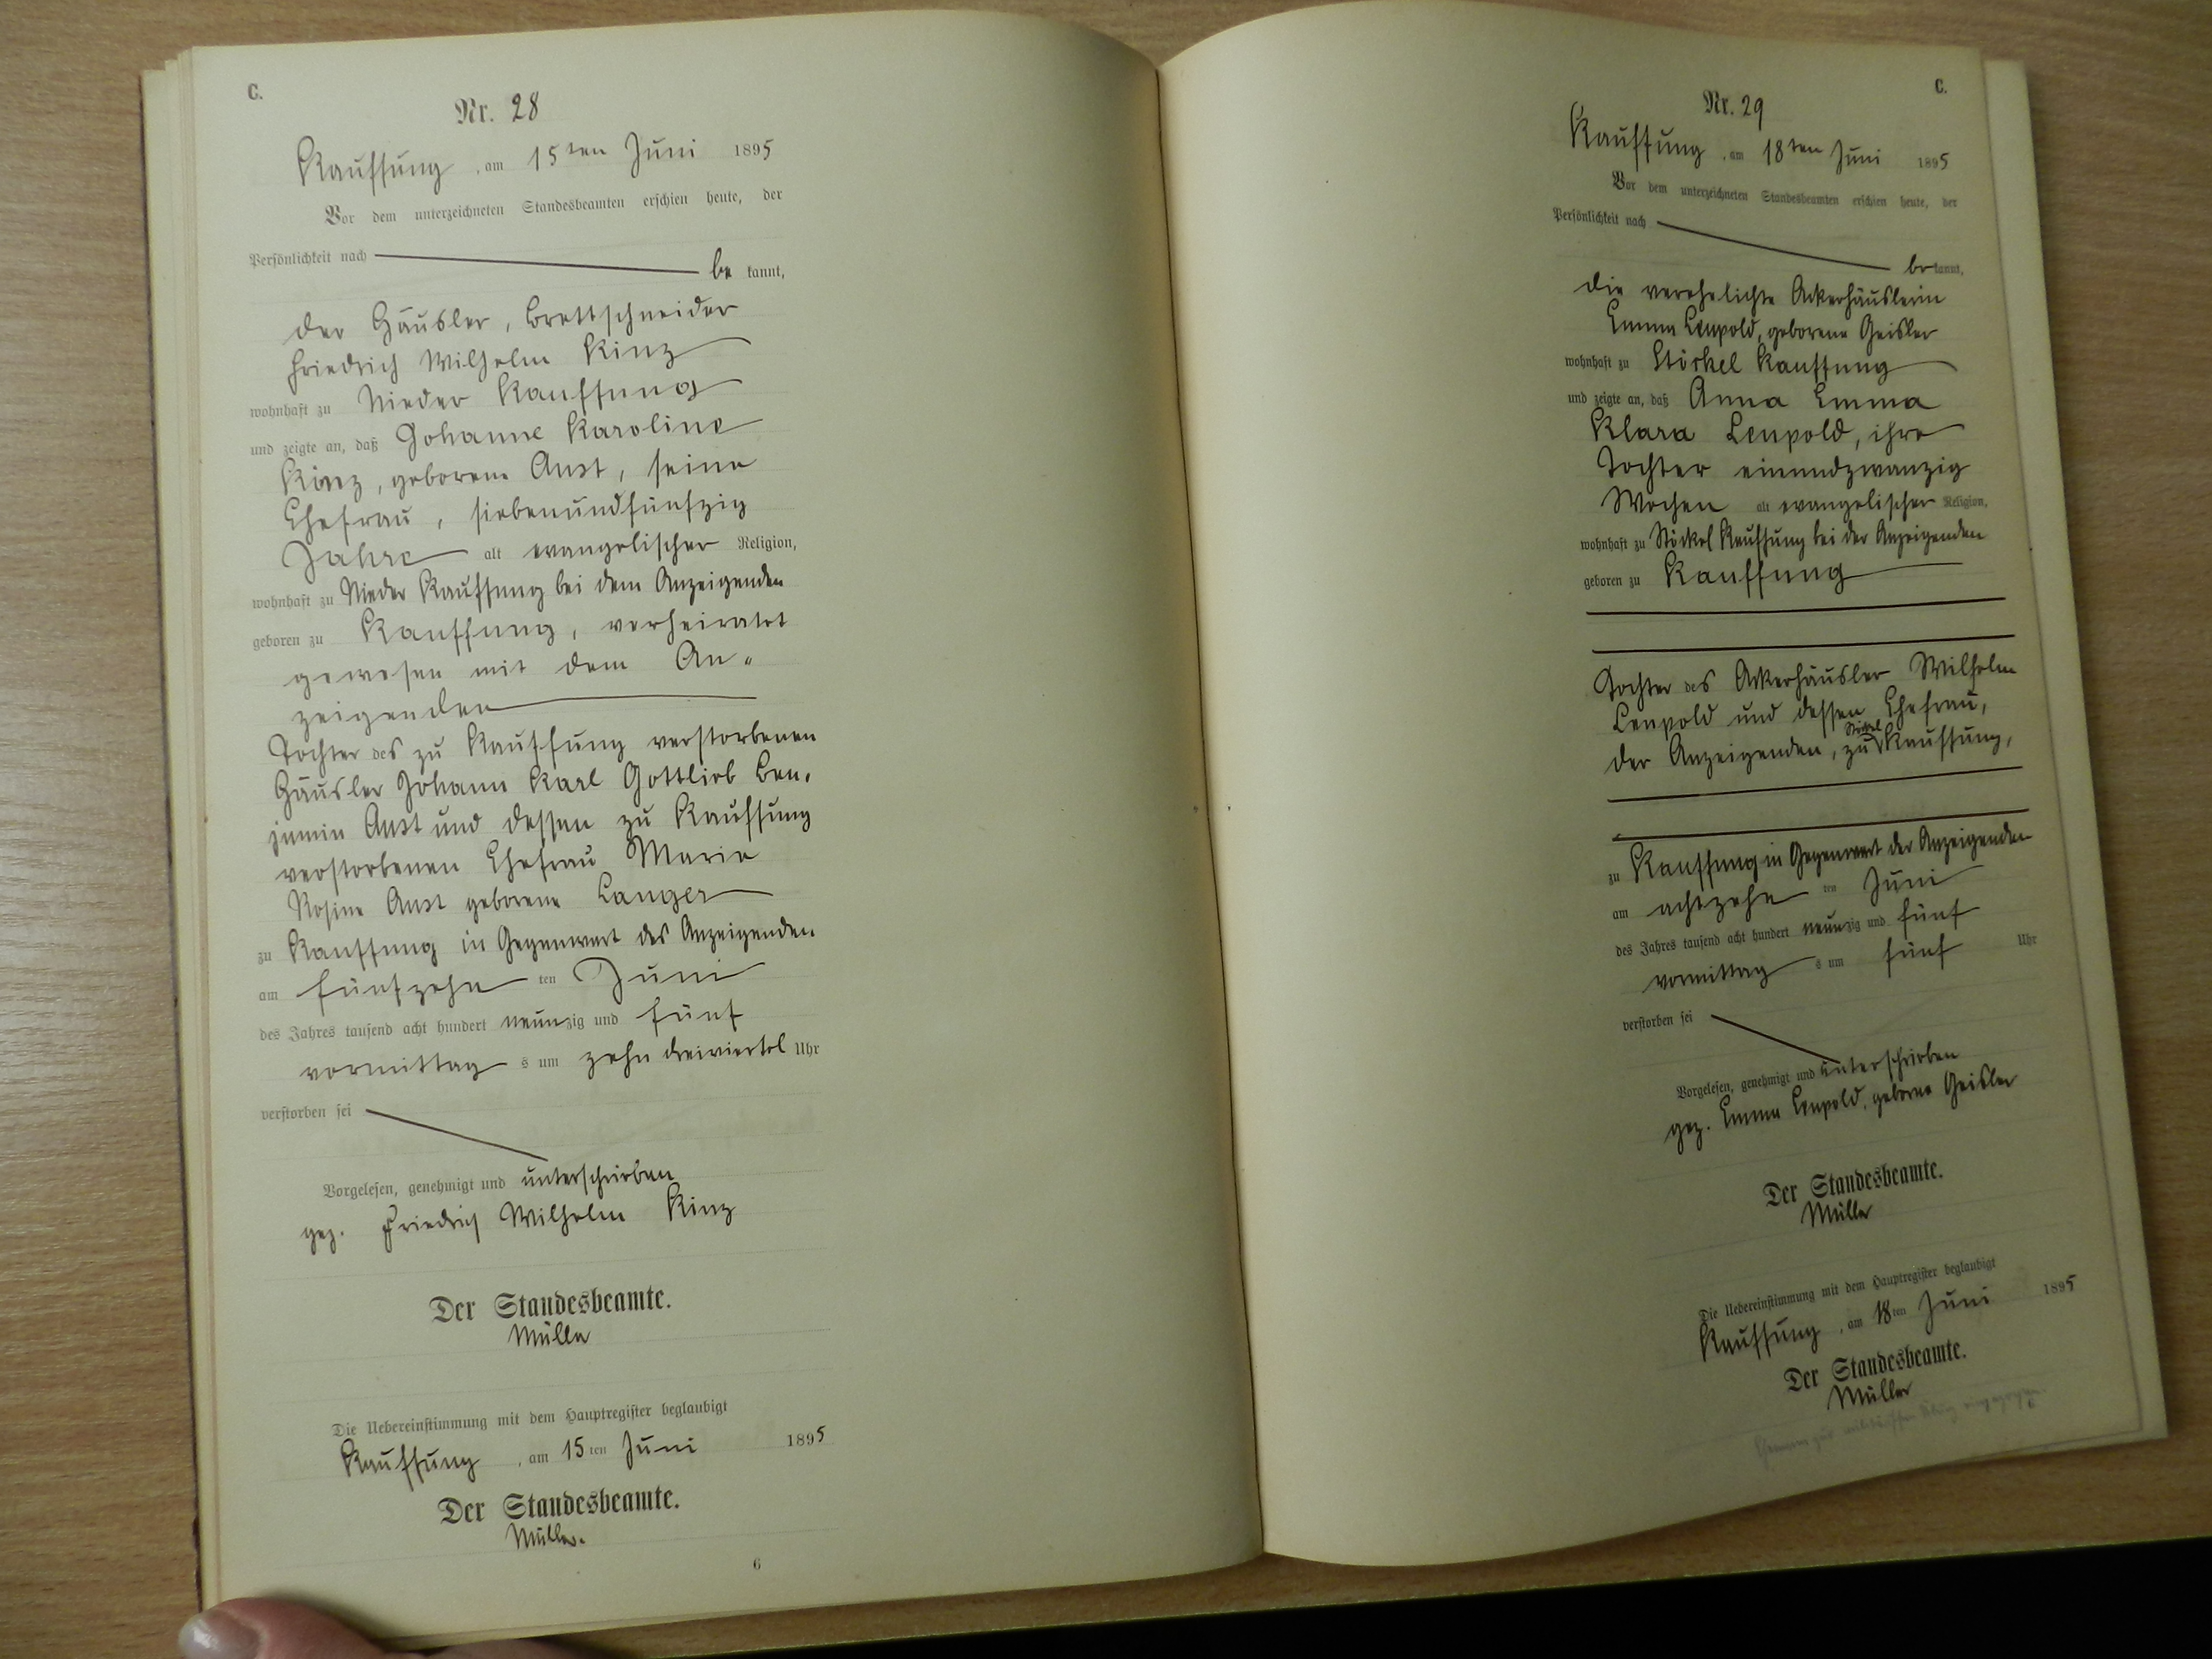 C.
Nr. 28
Kauffung, am 15ten Juni 1895
Vor dem unterzeichneten Standesbeamten erschien heute, der
Persönlichkeit nach be kannt,
der Häusler, Brettschneider
Friedrich Wilhelm Kinz
wohnhaft zu Nieder Kauffung
und zeigte an, daß Johanne Karoline
Kinz, geborene Aust, seine
Ehefrau, siebenundfünfzig
Jahre alt evangelischer Religion,
wohnhaft zu Nieder Kauffung bei dem Anzeigenden
geboren zu Kauffung, verheiratet
gewesen mit dem An-
zeigenden
Tochter des zu Kauffung verstorbenen
Häusler Johann Karl Gottlieb Ben-
jamin Aust und dessen zu Kauffung
verstorbenen Ehefrau Marie
Rosine Aust geborene Langer
zu Kauffung in Gegenwart des Anzeigenden
am fünfzehn ten Juni
des Jahres tausend acht hundert neunzig und fünf
vormittag s um zehn dreiviertel Uhr
verstorben sei
Vorgelesen, genehmigt und unterschrieben
gez. Friedrich Wilhelm Kinz
Der Standesbeamte.
Müller
Die Uebereinstimmung mit dem Hauptregister beglaubigt
Kauffung, am 15ten Juni 1895
Der Standesbeamte.
Müller.
6
C.
Nr. 29
Kauffung, am 18ten Juni 1895
Vor dem unterzeichneten Standesbeamten erschien heute, der
Persönlichkeit nach be kannt,
die verehelichte Ackerhäuslerin
Emma Leupold, geborene Geisler
wohnhaft zu Stöckel Kauffung
und zeigte an, daß Anna Emma
Klara Leupold, ihre
Tochter einundzwanzig
Wochen alt evangelischer Religion,
wohnhaft zu Stöckel Kauffung bei der Anzeigenden
geboren zu Kauffung
Tochter des Ackerhäusler Wilhelm
Leupold und dessen Ehefrau,
der Anzeigenden, zu Stöckel Kauffung,
zu Kauffung in Gegenwart der Anzeigenden
am achtzehn ten Juni
des Jahres tausend acht hundert neunzig und fünf
vormittag s um fünf Uhr
verstorben sei
Vorgelesen, genehmigt und unterschrieben
gez. Emma Leupold, geborene Geisler
Der Standesbeamte.
Müller
Die Uebereinstimmung mit dem Hauptregister beglaubigt
Kauffung, am 18ten Juni 1895
Der Standesbeamte.
Müller